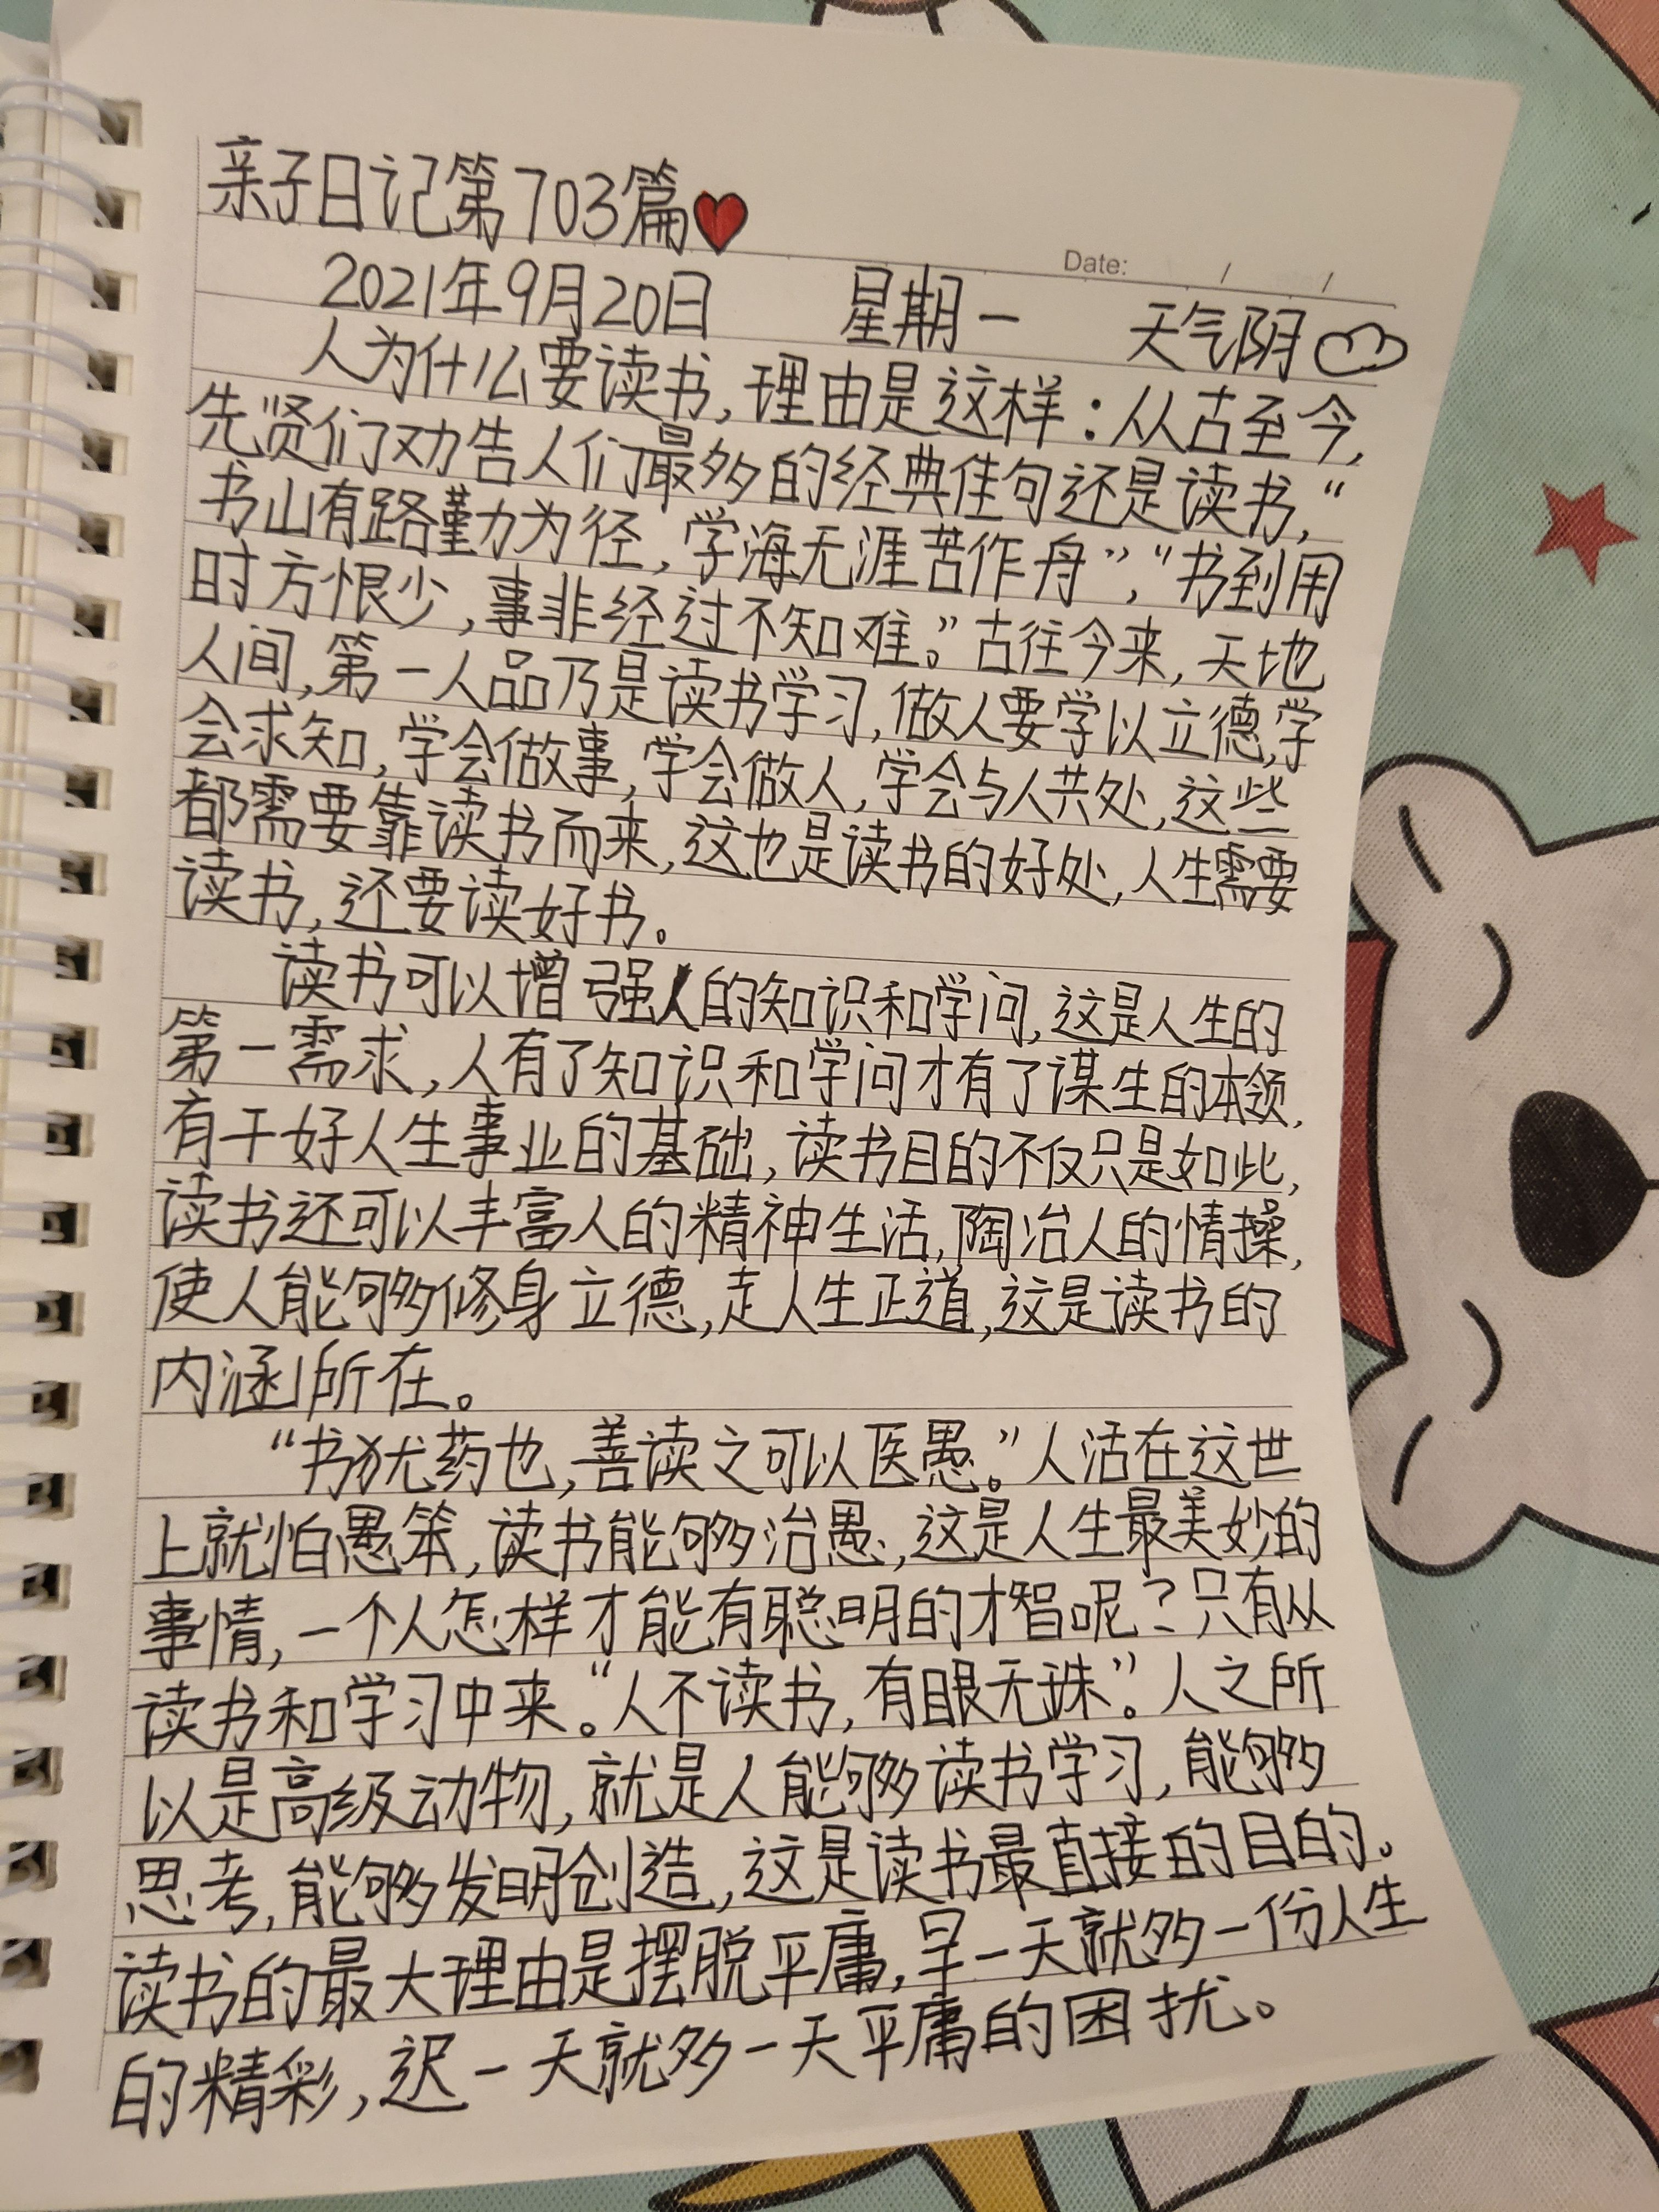 亲子日记第703篇
Date: / /
2021年9月20日 星期一 天气阴
人为什么要读书,理由是这样:从古至今,
先贤们劝告人们最多的经典佳句还是读书,“
书山有路勤为径,学海无涯苦作舟”,“书到用
时方恨少,事非经过不知难。”古往今来,天地
人间,第一人品乃是读书学习,做人要学以立德,学
会求知,学会做事,学会做人,学会与人共处,这些
都需要靠读书而来,这也是读书的好处,人生需要
读书,还要读好书。
读书可以增强人的知识和学问,这是人生的
第一需求,人有了知识和学问才有了谋生的本领,
有干好人生事业的基础,读书目的不仅只是如此,
读书还可以丰富人的精神生活,陶冶人的情操,
使人能够修身立德,走人生正道,这是读书的
内涵所在。
“书犹药也,善读之可以医愚。”人活在这世
上就怕愚笨,读书能够治愚,这是人生最美妙的
事情,一个人怎样才能有聪明的才智呢?只有从
读书和学习中来。“人不读书,有眼无珠”。人之所
以是高级动物,就是人能够读书学习,能够
思考,能够发明创造,这是读书最直接的目的。
读书的最大理由是摆脱平庸,早一天就多一份人生
的精彩,迟一天就多一天平庸的困扰。